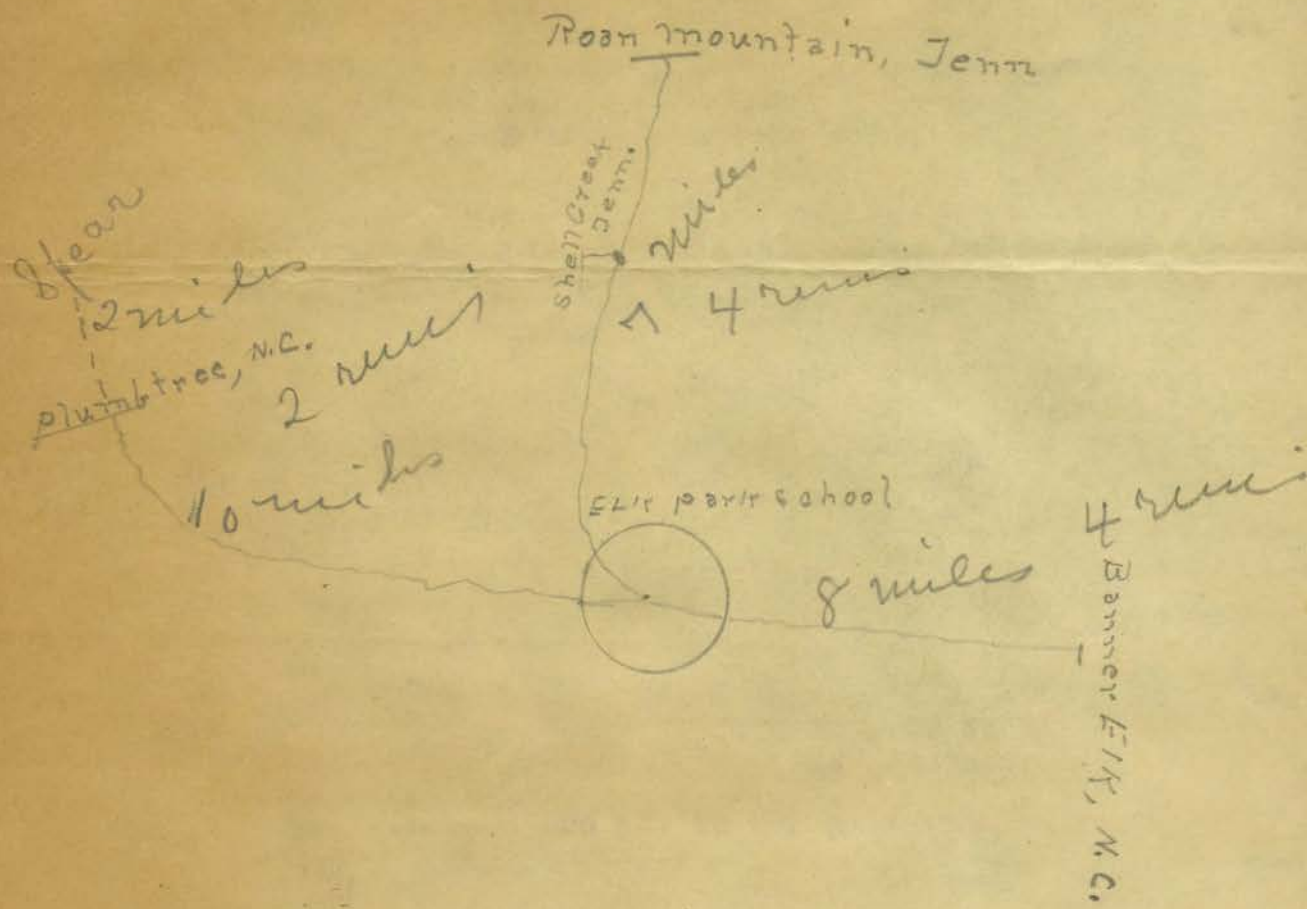 Roan mountain, Tenn
Shell Creek
Tenn.
miles
4
Spear
12 miles
Plumbtree, N.C.
2
10 miles
Elk park school
8 miles
4
Banner Elk, N.C.